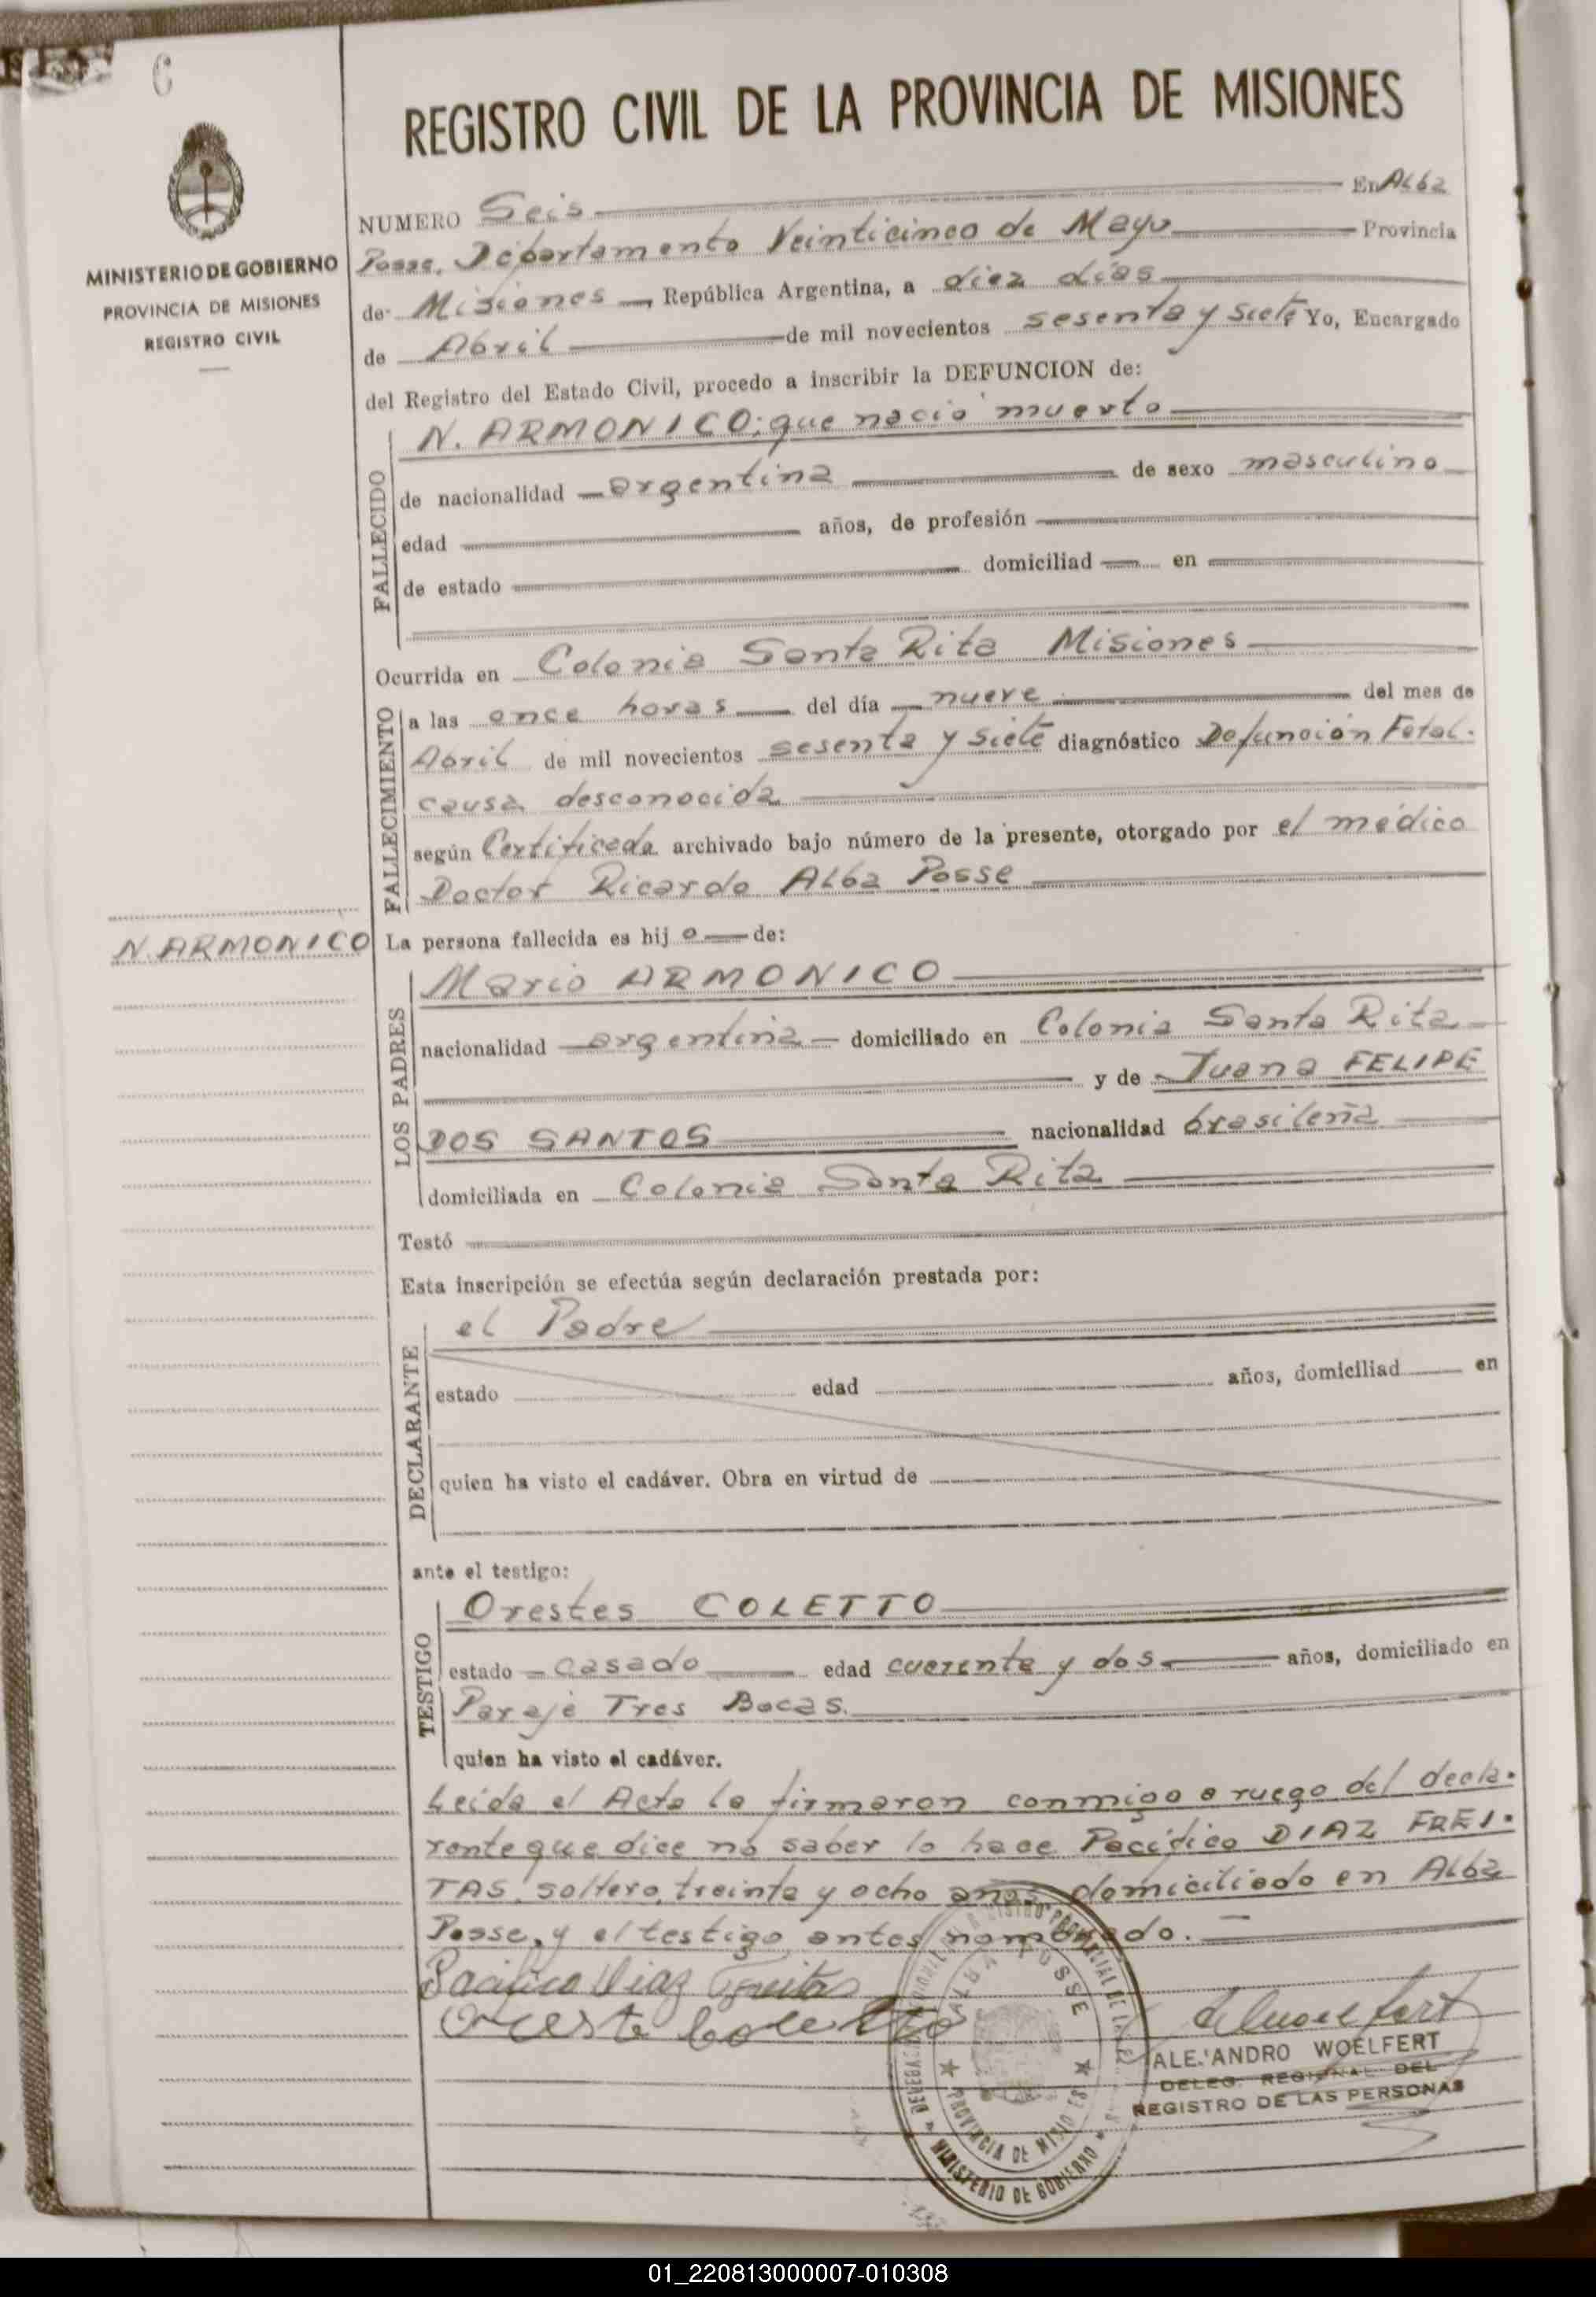 6
REGISTRO CIVIL DE LA PROVINCIA DE MISIONES
MINISTERIO DE GOBIERNO
PROVINCIA DE MISIONES
REGISTRO CIVIL
NUMERO Seis En Alba
Posse, Departamento Veinticinco de Mayo Provincia
de Misiones República Argentina, a diez días
de Abril de mil novecientos sesenta y siete Yo, Encargado
del Registro del Estado Civil, procedo a inscribir la DEFUNCION de:
FALLECIDO
N. ARMONICO; que nació muerto
de nacionalidad argentina de sexo masculino
edad años, de profesión
de estado domiciliad en
Ocurrida en Colonia Santa Rita Misiones
FALLECIMIENTO
a las once horas del día nueve del mes de
Abril de mil novecientos sesenta y siete diagnóstico Defunción Fetal.
causa desconocida
según Certificado archivado bajo número de la presente, otorgado por el médico
Doctor Ricardo Alba Posse
N. ARMONICO
La persona fallecida es hij o de:
LOS PADRES
Mario ARMONICO
nacionalidad argentina domiciliado en Colonia Santa Rita
y de Juana FELIPE
DOS SANTOS nacionalidad brasileña
domiciliada en Colonia Santa Rita
Testó
Esta inscripción se efectúa según declaración prestada por:
DECLARANTE
el Padre
estado edad años, domiciliad en
quien ha visto el cadáver. Obra en virtud de
ante el testigo:
TESTIGO
Orestes COLETTO
estado casado edad cuarenta y dos años, domiciliado en
Paraje Tres Bocas.
quien ha visto el cadáver.
Leída el Acta la firmaron conmigo a ruego del decla-
rante que dice no saber lo hace Pacífico DIAZ FREI-
TAS, soltero, treinta y ocho años domiciliado en Alba
Posse, y el testigo antes nombrado.
Pacifico Diaz Freitas
Oreste Coletto
ALBA POSSE
PROVINCIA DE MISIONES
MINISTERIO DE GOBIERNO
ALEJANDRO WOELFERT
DELEG. REGIONAL DEL
REGISTRO DE LAS PERSONAS
01_220813000007-010308